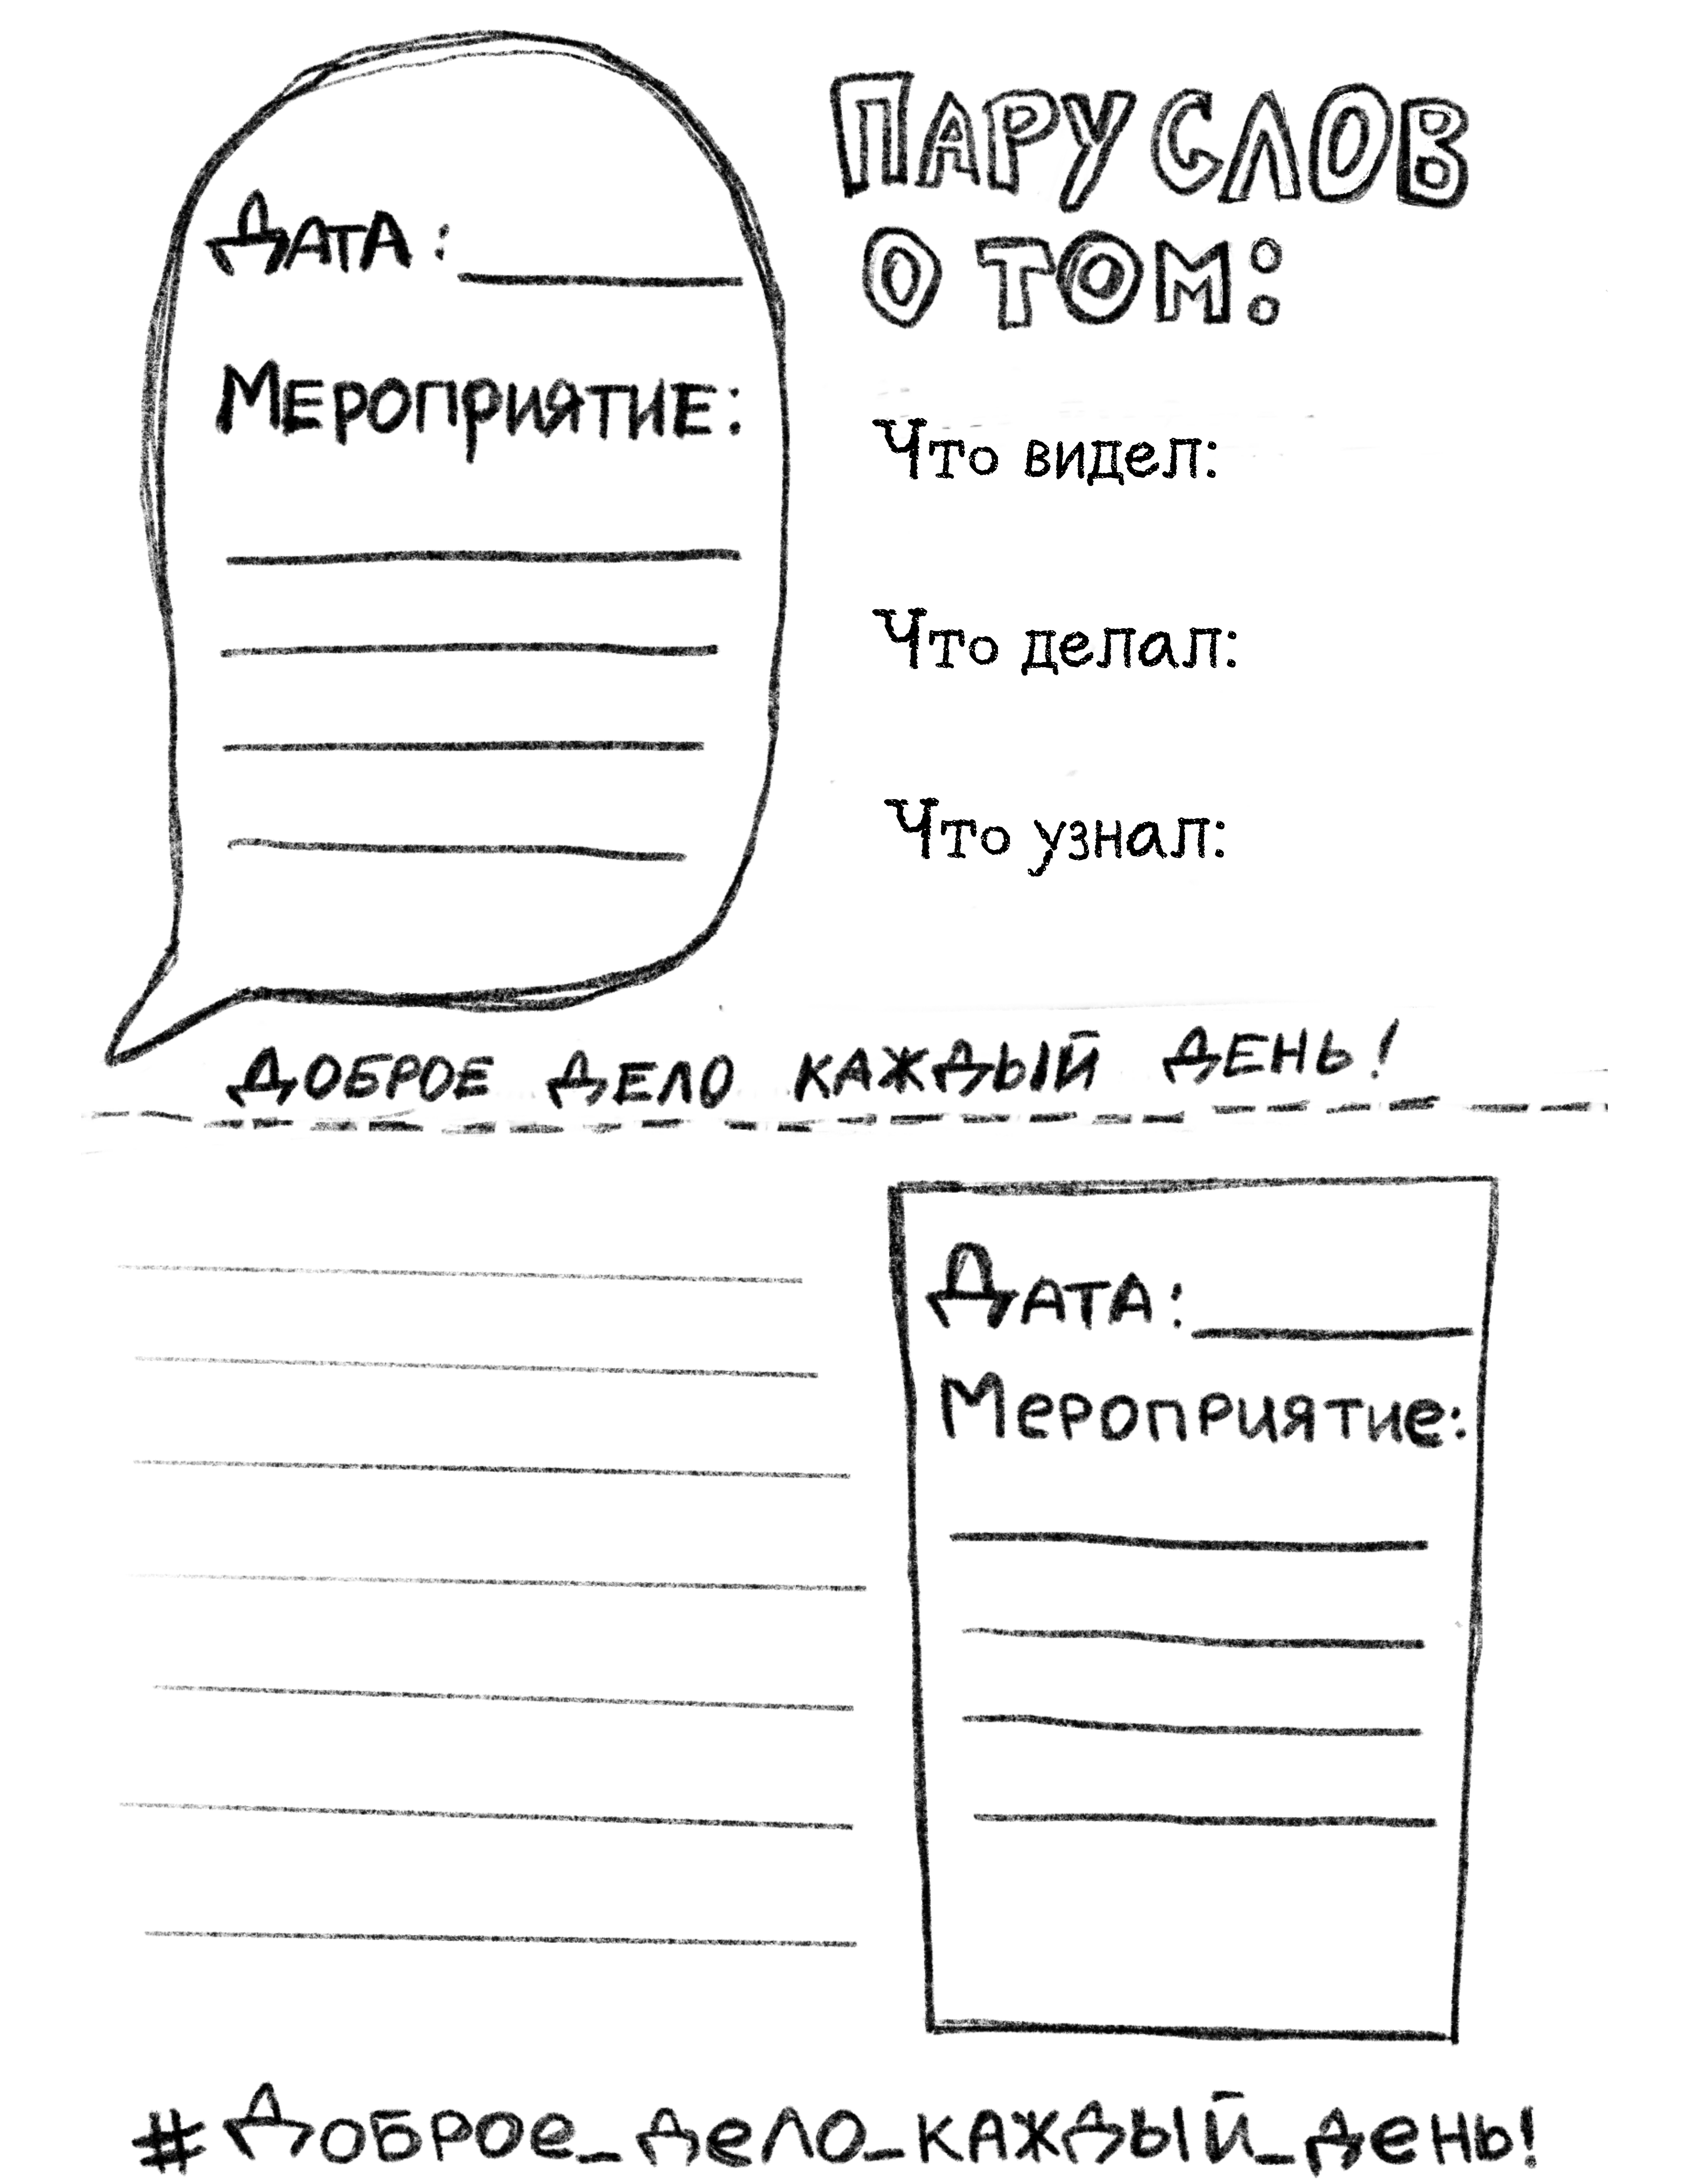 Дата:
Мероприятие:
ПАРУ СЛОВ
О ТОМ:
Что видел:
Что делал:
Что узнал:
ДОБРОЕ ДЕЛО КАЖДЫЙ ДЕНЬ!
Дата:
Мероприятие:
#Доброе_дело_каждый_день!